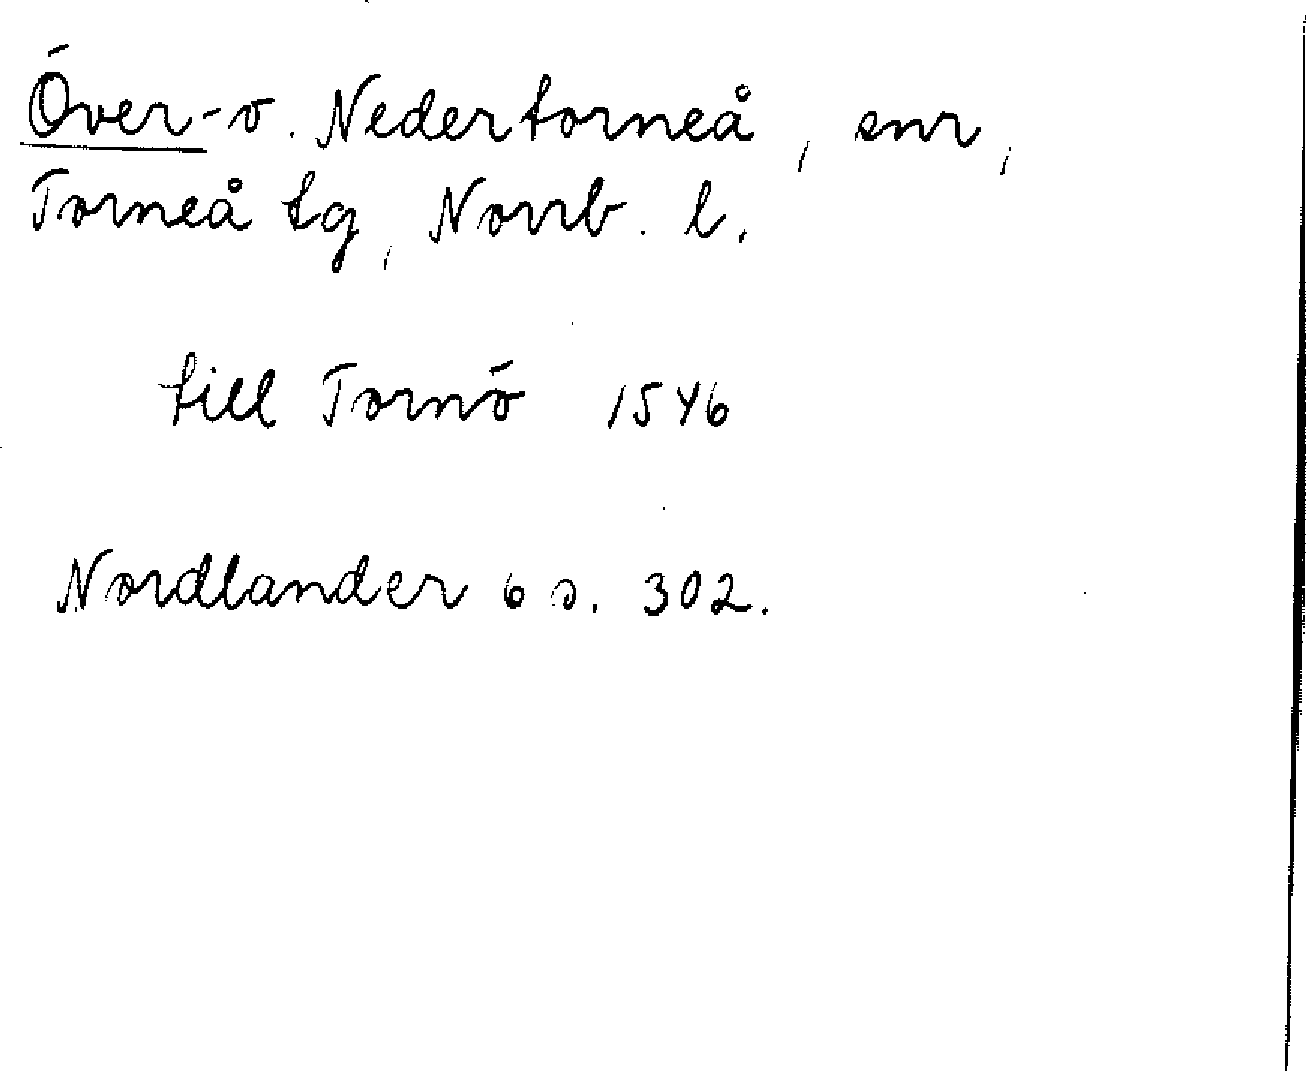 Över- o. Nedertorneå, snr,
Torneå tg, Norrb. l.
till Tornö 1546
Nordlander 6 s. 302.